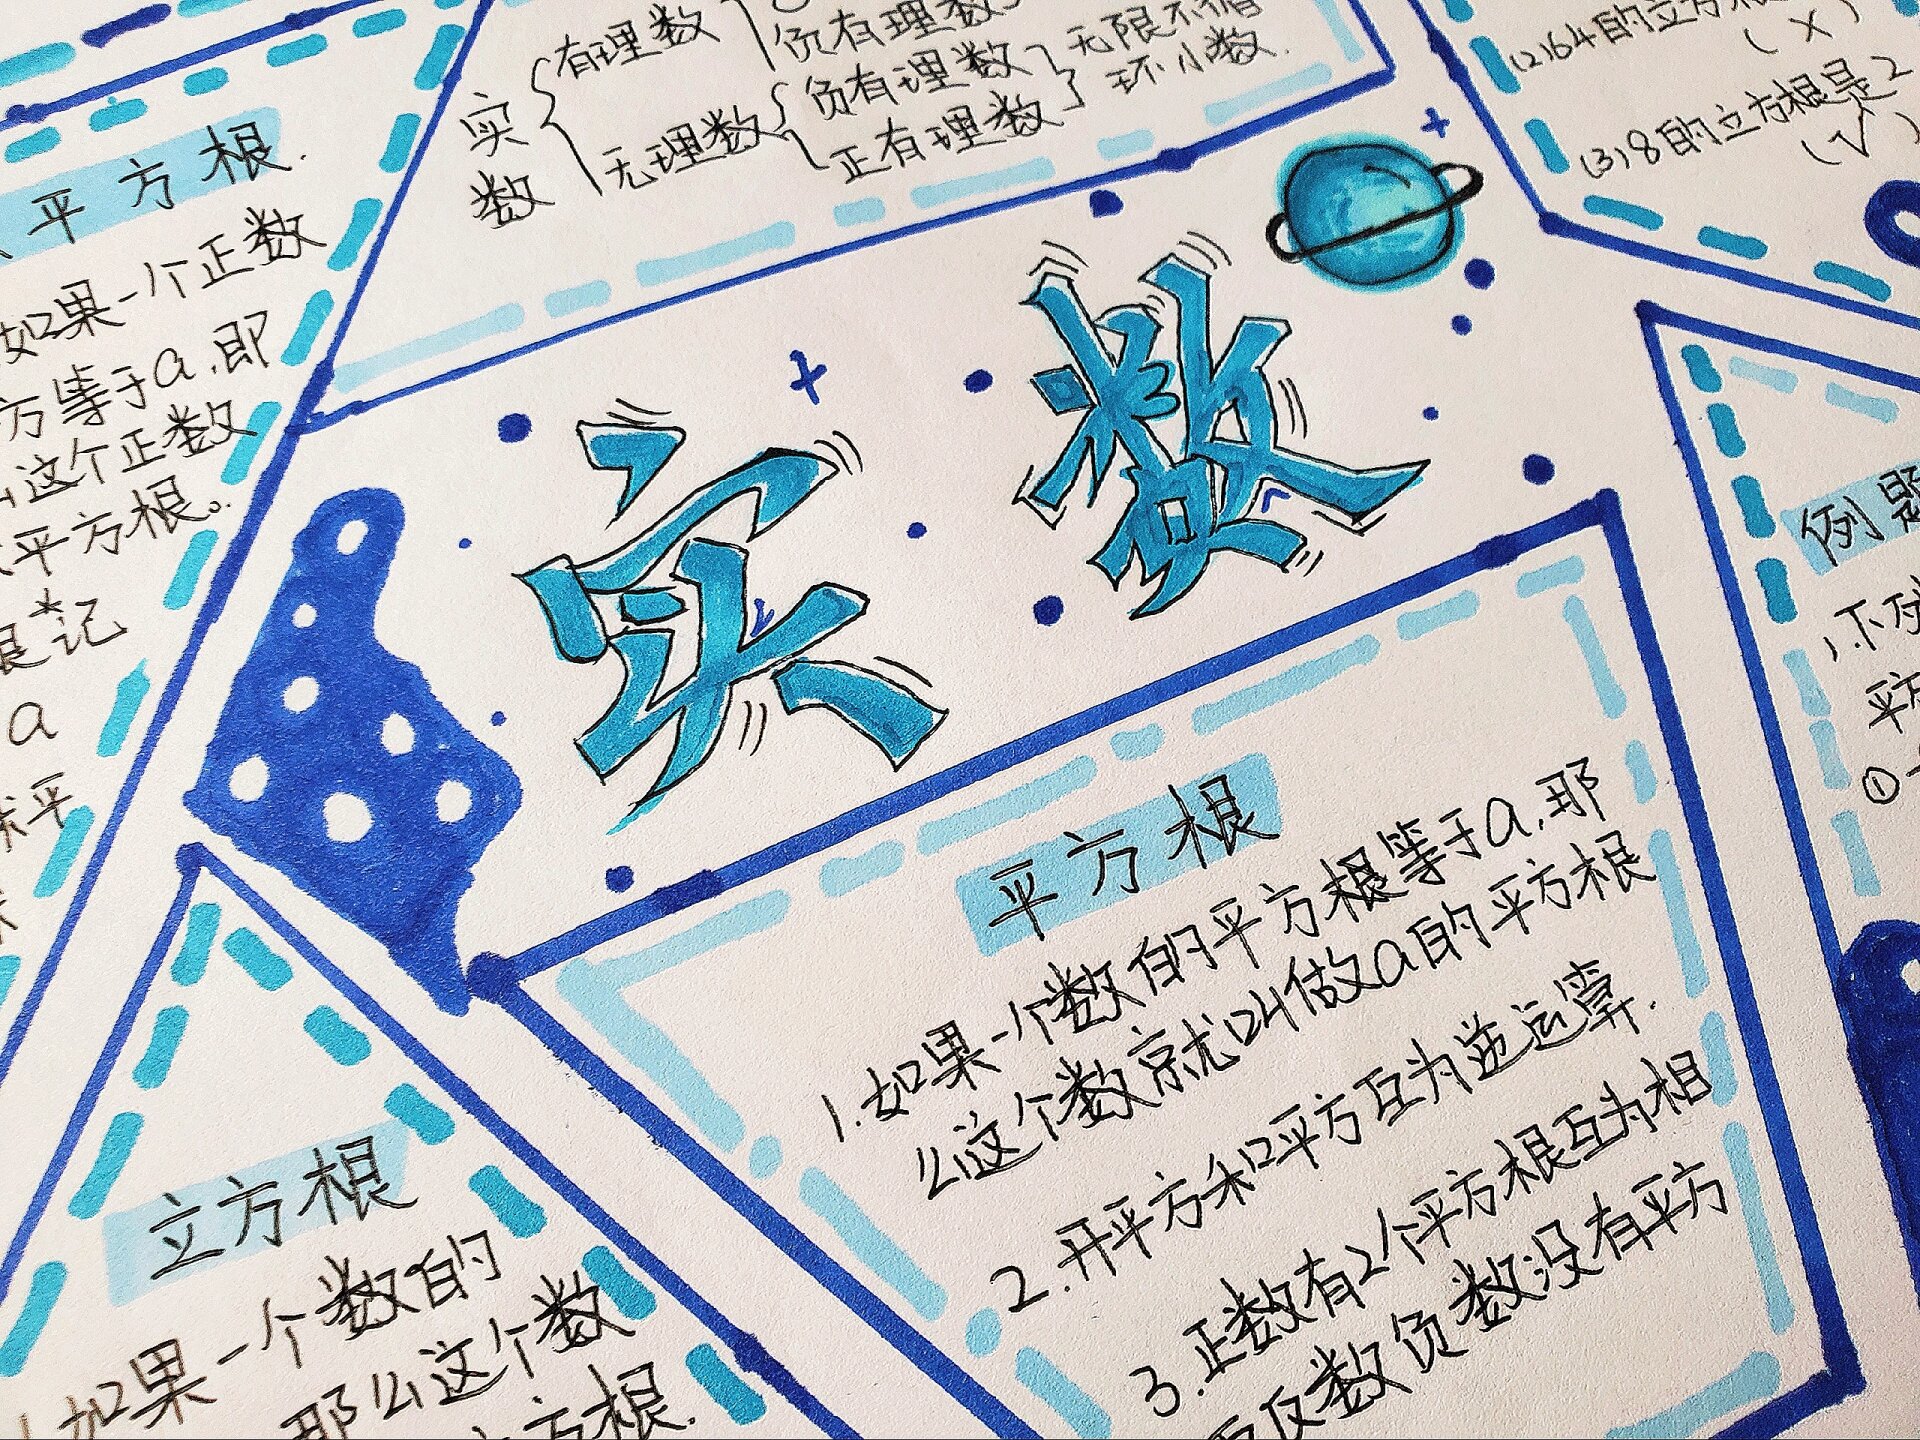 有理数
负有理数
实
数
无理数
负有理数
正有理数
无限不循
环小数.
(2)64的立方根
(×)
(3)8的立方根是2
(√)
平方根.
如果一个正数
方等于a.即
这个正数
平方根。
根*记
a
平
实数
平方根
1.如果一个数的平方根等于a.那
么这个数就叫做a的平方根
2.开平方和平方互为逆运算.
3.正数有2个平方根互为相
反数负数没有平方
立方根
1.如果一个数的
那么这个数
立方根.
例题
1.下
平方
①